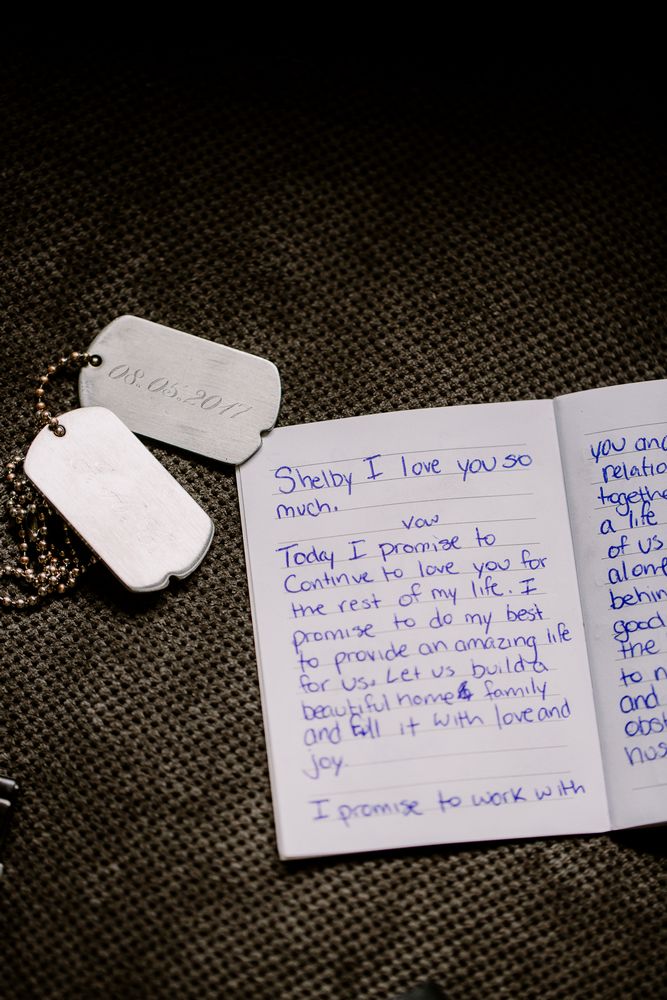 08.05.2017
Shelby I love you so
much.
vow
Today I promise to
Continue to love you for
the rest of my life. I
promise to do my best
to provide an amazing life
for us. Let us build a
beautiful home & family
and fill it with love and
joy.
I promise to work with
you and
relatio
togethe
a life
of us
alone
behin
good
the
to n
and
obst
hus